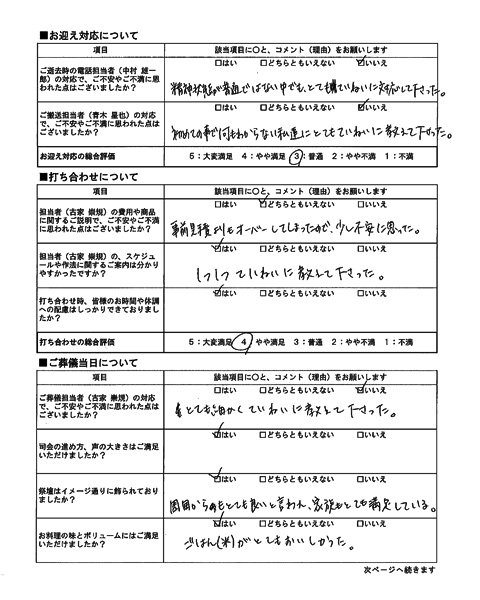 ■お迎え対応について
項目 該当項目に○と、コメント（理由）をお願いします
ご逝去時の電話担当者（中村 雄一郎）の対応で、ご不安やご不満に思われた点はございましたか？
□はい □どちらともいえない ☑いいえ
精神状態が普通ではない中でも、とても丁寧にていねいに対応して下さった。
ご搬送担当者（青木 星也）の対応で、ご不安やご不満に思われた点はございましたか？
□はい □どちらともいえない ☑いいえ
初めての事で何もわからない私達にとてもていねいに教えて下さった。
お迎え対応の総合評価 5：大変満足 4：やや満足 3：普通 2：やや不満 1：不満
■打ち合わせについて
項目 該当項目に○と、コメント（理由）をお願いします
担当者（古家 崇規）の費用や商品に関するご説明で、ご不安やご不満に思われた点はございましたか？
□はい ☑どちらともいえない □いいえ
事前見積よりもオーバーしてしまったので、少し不安に思った。
担当者（古家 崇規）の、スケジュールや作法に関するご案内は分かりやすかったですか？
☑はい □どちらともいえない □いいえ
1つ1つていねいに教えて下さった。
打ち合わせ時、皆様のお時間や体調への配慮はしっかりできておりましたか？
☑はい □どちらともいえない □いいえ
打ち合わせの総合評価 5：大変満足 4：やや満足 3：普通 2：やや不満 1：不満
■ご葬儀当日について
項目 該当項目に○と、コメント（理由）をお願いします
ご葬儀担当者（古家 崇規）の対応で、ご不安やご不満に思われた点はございましたか？
□はい □どちらともいえない ☑いいえ
とても細かくていねいに教えて下さった。
司会の進め方、声の大きさはご満足いただけましたか？
☑はい □どちらともいえない □いいえ
祭壇はイメージ通りに飾られておりましたか？
☑はい □どちらともいえない □いいえ
周囲からもとても良いと言われ、家族もとても満足している。
お料理の味とボリュームにはご満足いただけましたか？
☑はい □どちらともいえない □いいえ
ごはん(米)がとてもおいしかった。
次ページへ続きます